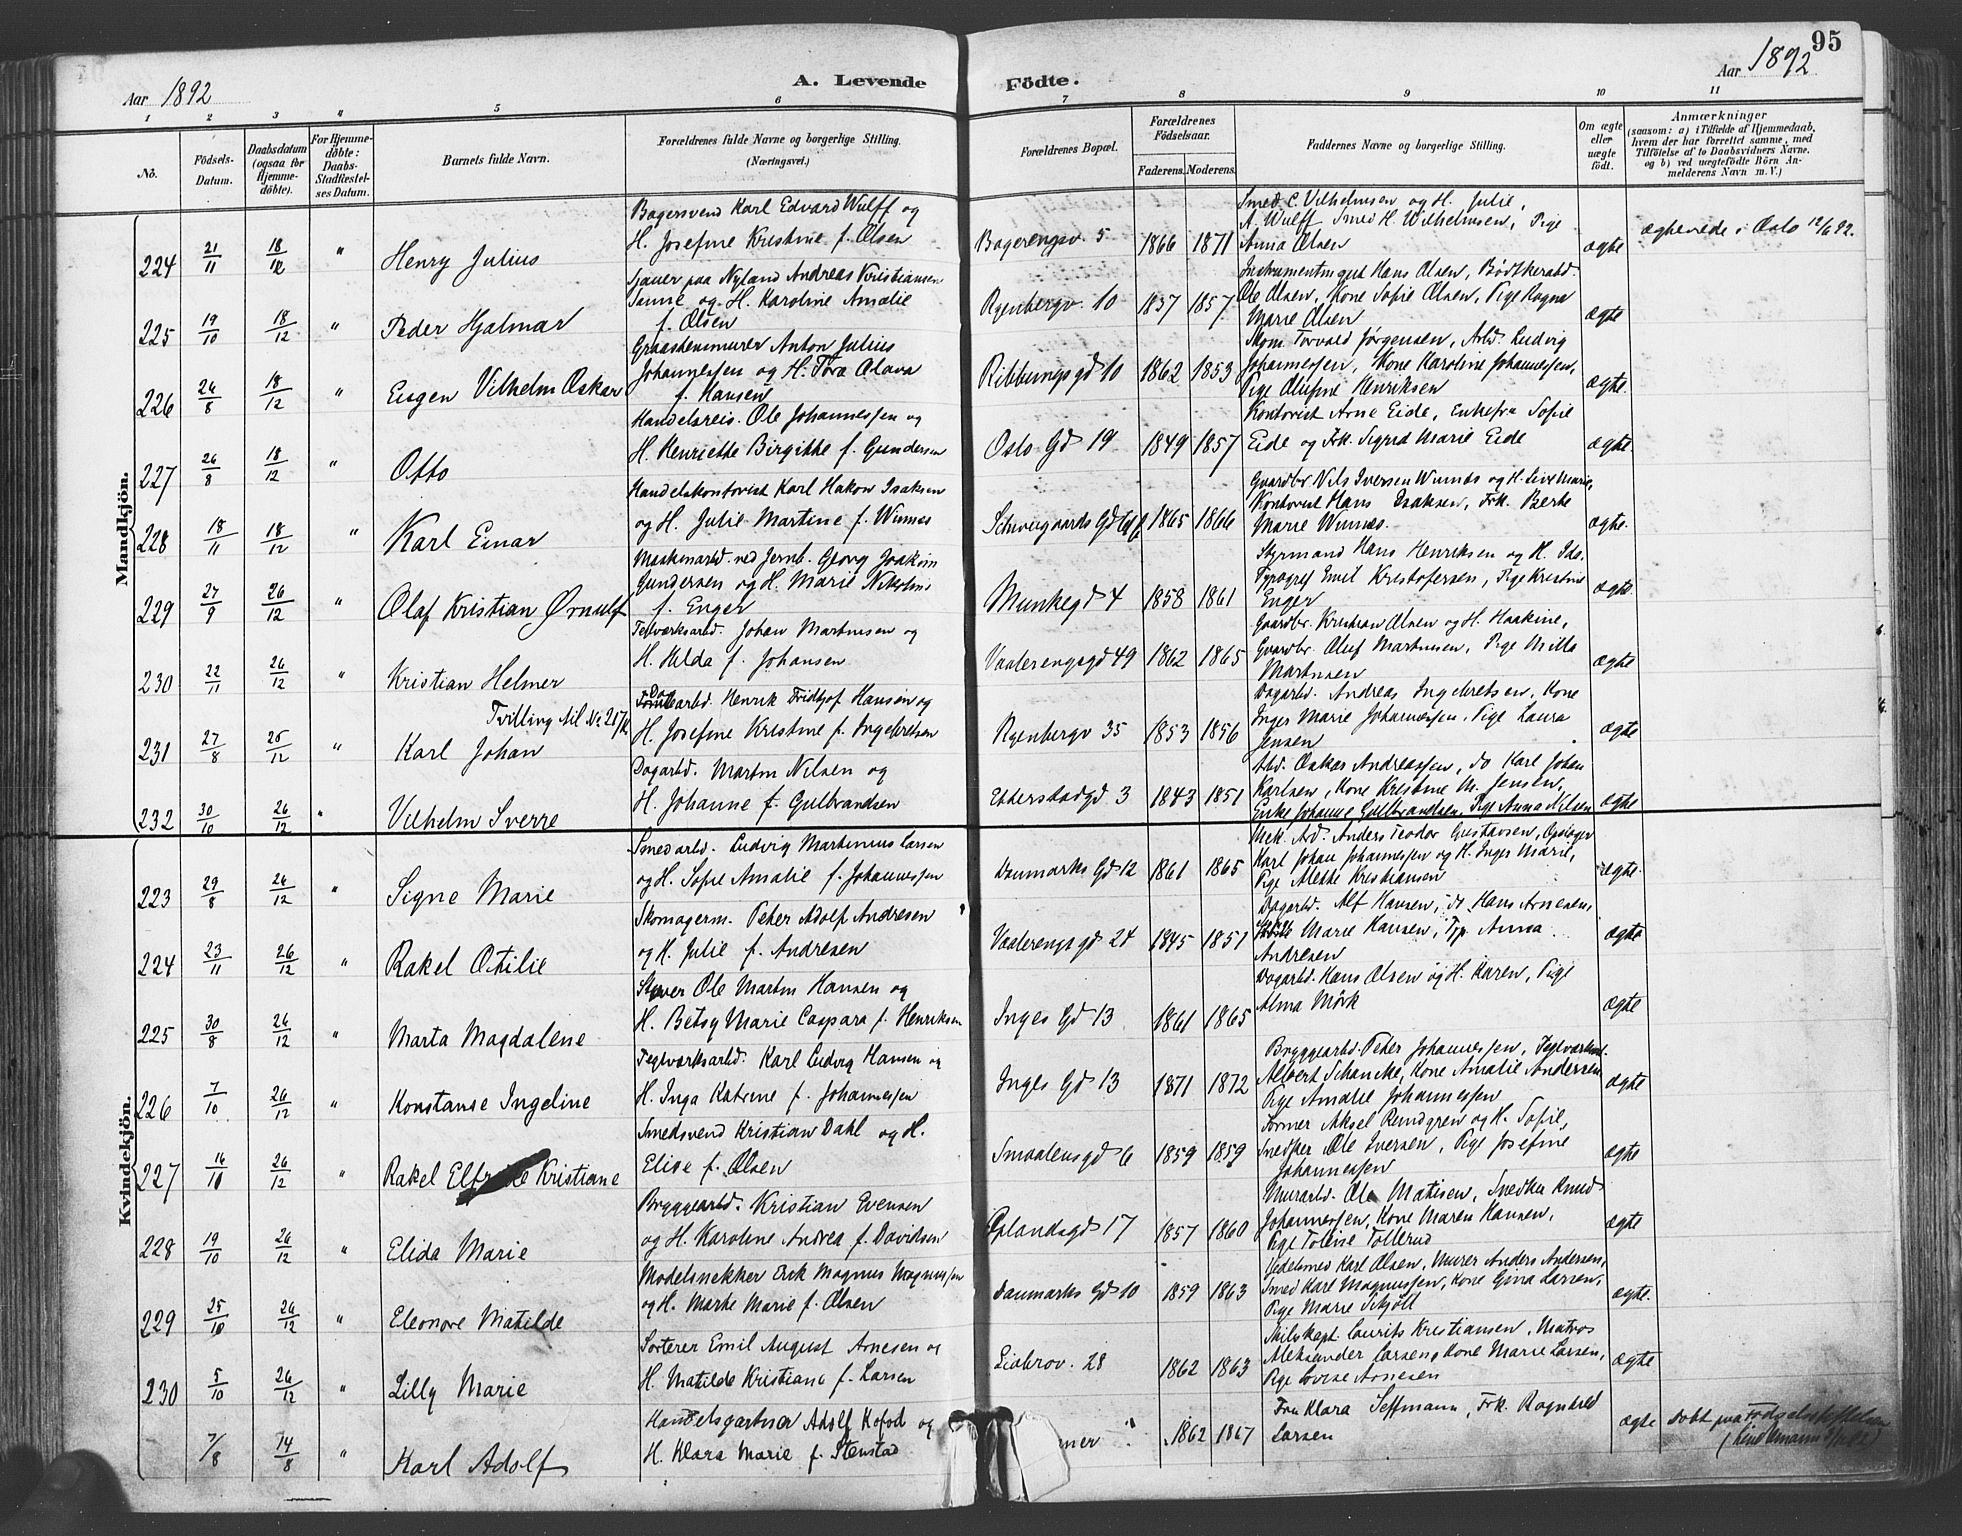 95
Aar 1892
A. Levende
Födte.
Aar 1892
1 2 3 4 5 6 7 8 9 10 11
No.
Födsels-
Datum.
Daabsdatum
(ogsaa for
Hjemme-
döbte).
For Hjemme-
döbte:
Daabs-
Stadfæstel-
ses Datum.
Barnets fulde Navn.
Forældrenes fulde Navne og borgerlige Stilling.
(Næringsvei.)
Forældrenes Bopæl.
Forældrenes
Födselsaar.
Faderens. Moderens.
Faddernes Navne og borgerlige Stilling.
Om ægte
eller
uægte
födt.
Anmærkninger
(saasom: a) i Tilfælde af Hjemmedaab,
hvem der har forrettet samme, med
Tilföielse af to Daabsvidners Navne,
og b) ved uægtefödte Börn An-
melderens Navn m. V.)
Mandkjön.
224 21/11 18/12 " Henry Julius
Bagersvend Karl Edvard Wulff og
H. Josefine Kristine f. Olsen
Bagerengsv. 5 1866 1871
Smed C. Vilhelmsen og H. Julie,
A. Wulff Smed H. Wilhelmsen, Pige
Anna Olsen
ægte
ægteviede i Oslo 12/6 92.
225 19/10 18/12 " Peder Hjalmar
Sjauer paa Nyland Andreas Kristiansen
Sanne og H. Karoline Amalie
f. Olsen
Ryenbergv. 10 1857 1857
Instrumentmager Hans Olsen, Bödtkerarbd.
Ole Olsen, Kone Sofie Olsen, Pige Ragna
Marie Olsen
ægte
226 26/8 18/12 " Eugen Vilhelm Oskar
Graastensmurer Anton Julius
Johannessen og H. Tora Olava
f. Hansen
Ribbungsgd 10 1862 1853
Skom. Torvald Jörgensen, Arbd. Ludvig
Johannessen, Kone Karoline Johannessen,
Pige Olufine Henriksen
ægte.
227 26/8 18/12 " Otto
Handelsreis. Ole Johannessen og
H. Henriette Birgitte f. Gundersen
Oslo Gd 19 1849 1857
Kontorist Arne Eide, Enkefru Sofie
Eide og Frk. Sigrid Marie Eide
ægte
228 18/11 18/12 " Karl Einar
Handelskontorist Karl Hakon Isaksen
og H. Julie Martine f. Winnæs
Schweigaards Gd 1865 1866
Gaardbr. Nils Iversen Winnæs og H. Live Marie,
Kontorist Hans Isaksen, Frk. Berte
Marie Winnæs.
ægte.
229 27/9 26/12 " Olaf Kristian Ørnulf
Maskinarbd. ved Jernb. Georg Joakim
Gundersen og H. Marie Nikoline
f. Enger
Munkegd 4 1858 1861
Styrmand Hans Henriksen og H. Ida,
Typograf Emil Kristofersen, Pige Kristine
Enger
ægte.
230 22/11 26/12 " Kristian Helmer
Teglværksarbd. Johan Martinsen og
H. Hilda f. Johansen
Vaalerengsgd 49 1862 1865
Gaardbr. Kristian Olsen og H. Haakine,
Gaardbr. Oluf Martinsen, Pige Milla
Martinsen
ægte
Tvilling til No 217
231 27/8 25/12 " Karl Johan
Henrik Fridtjof Hansen og
H. Josefine Kristine f. Ingebretsen
Ryenbergv 35 1853 1856
Dagarbd. Andreas Ingebretsen, Kone
Inger Marie Johannessen, Pige Laura
Jensen
ægte
232 30/10 26/12 " Vilhelm Sverre
Dagarbd. Martin Nilsen og
H. Johanne f. Gulbrandsen
Etterstadgd 3 1843 1851
Arbd. Oskar Andreassen, do Karl Johan
Karlsen, Kone Kristine M. Jensen,
Enke Johanne Gulbrandsen, Pige Anna Nilsen
ægte
Kvindekjön.
223 29/8 26/12 " Signe Marie
Smedarbd. Ludvig Martinius Larsen
og H. Sofie Amalie f. Johannessen
Danmarks Gd 12 1861 1865
Mek. Arb. Anders Teodor Gustavsen, Opdager
Karl Johan Johannessen og H. Inger Marie,
Pige Alette Kristiansen
ægte.
224 23/11 26/12 " Rakel Otilie
Skomagerm. Peter Adolf Andresen
og H. Julie f. Andresen
Vaalerengsgd 24 1845 1851
Dagarbd. Alf Hansen, do Hans Arnesen,
Marie Hansen, Anna
Andresen
ægte
225 30/8 26/12 " Marta Magdalene
Stuver Ole Martin Hansen og
H. Betsy Marie Caspara f. Henriksen
Inges Gd 13 1861 1865
Dagarbd. Hans Olsen og H. Karen, Pige
Alma Mörk
ægte
226 7/10 26/12 " Konstanse Ingeline
Teglværksarbd. Karl Ludvig Hansen og
H. Inga Katrine f. Johannessen
Inges Gd 13 1871 1872
Bryggearbd. Peter Johannessen, Teglværksarbd.
Albert Schancke, Kone Amalie Andersen
Pige Amalie Johannessen
ægte
227 16/10 26/12 " Rakel Elfride Kristiane
Smedsvend Kristian Dahl og H.
Elise f. Olsen
Smaalensgd 6 1859 1859
Former Aksel Rundgren og H. Sofie,
Snedker Ole Iversen, Pige Josefine
Johannessen
ægte
228 19/10 26/12 " Elida Marie
Bryggearbd. Kristian Evensen
og H. Karoline Andrea f. Davidsen
Oplandsgd 17 1857 1860
Murarbd. Ole Matisen, Snedker Knud
Johannessen, Kone Maren Hansen,
Pige Toline Tollerud
ægte
229 25/10 26/12 " Eleonore Matilde
Modelsnekker Erik Magnus Magnussen
og H. Marte Marie f. Olsen
Danmarks Gd 10 1859 1863
Karl Olsen, Murer Anders Andersen,
Smed Karl Magnussen, Kone Gina Larsen,
Pige Marie Skjöll
ægte.
230 5/10 26/12 " Lilly Marie
Sorterer Emil August Arnesen og
H. Matilde Kristiane f. Larsen
Liabrov. 28 1862 1863
Skibskapt. Laurits Kristiansen, Matros
Aleksander Larsen, Kone Marie Larsen,
Pige Lovise Arnesen
ægte
7/8 14/8 " Karl Adolf
Handelsgartner Adolf Kofod og
H. Klara Marie f. Stenstad
" 1862 1867
Fru Klara Seffmann, Frk. Ragnhild
Larsen
ægte
Döbt paa Födselsstiftelsen